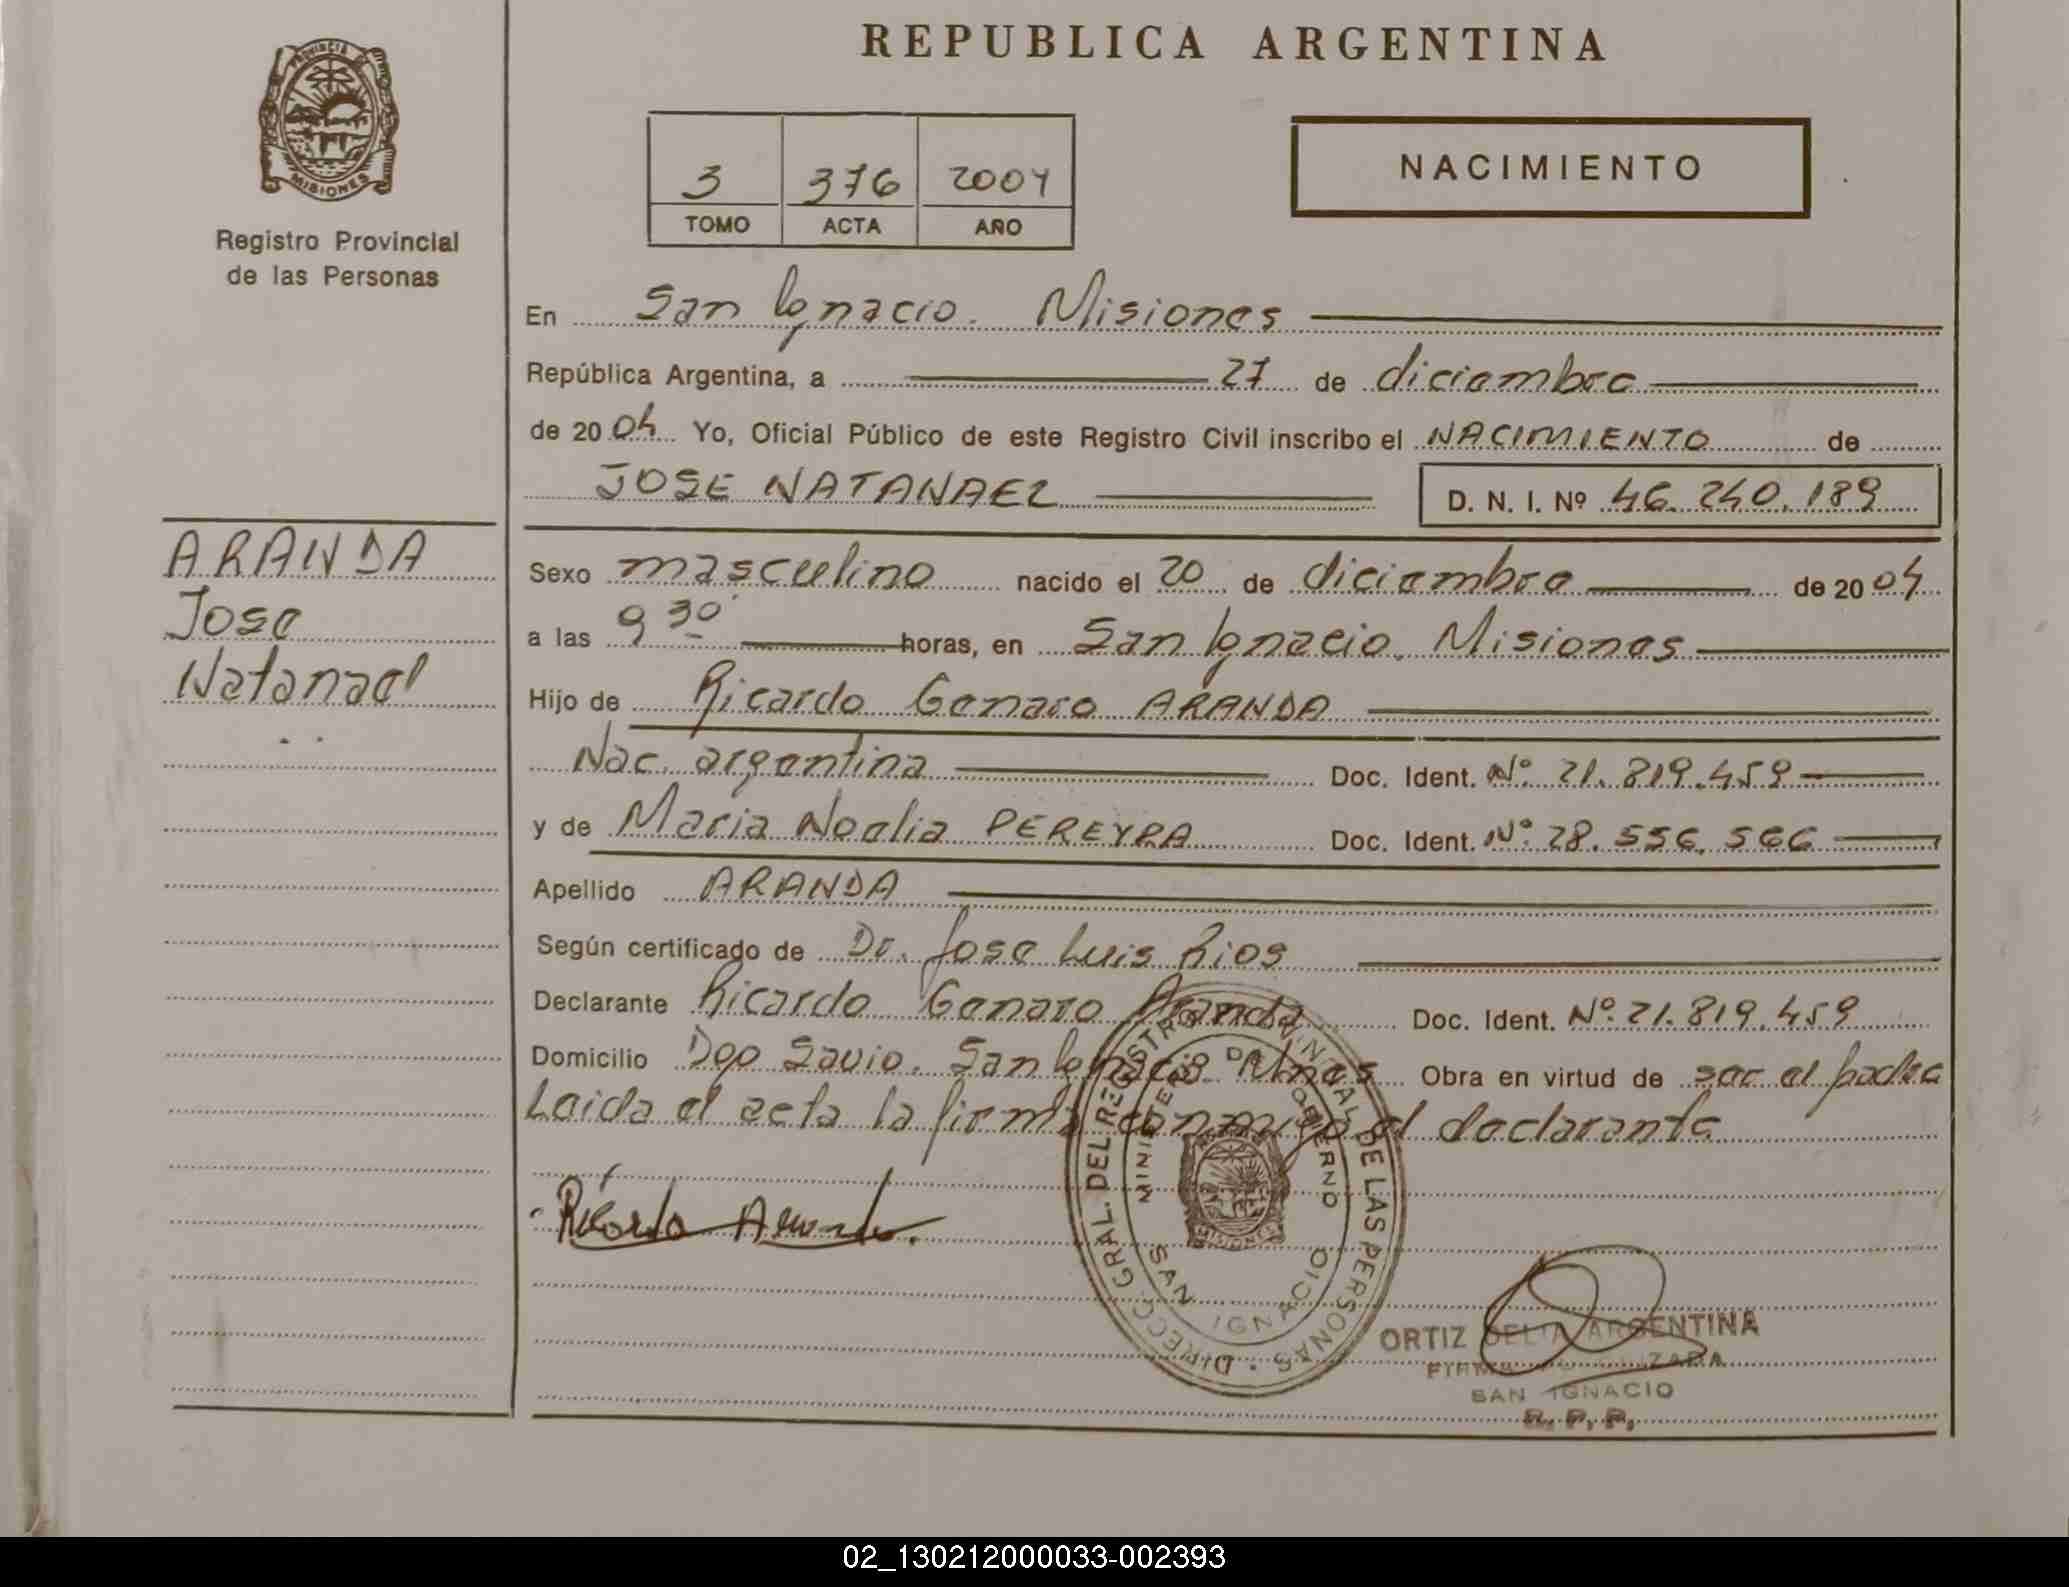 REPUBLICA ARGENTINA
PROVINCIA DE
MISIONES
Registro Provincial
de las Personas
3 376 2004
TOMO ACTA AÑO
NACIMIENTO
En San Ignacio. Misiones
República Argentina, a 27 de diciembre
de 2004 Yo, Oficial Público de este Registro Civil inscribo el NACIMIENTO de
JOSE NATANAEL D. N. I. Nº 46.240.189
ARANDA
Jose
Natanael
Sexo masculino nacido el 20 de diciembre de 2004
a las 9 30 horas, en San Ignacio. Misiones
Hijo de Ricardo Genaro ARANDA
Nac. argentina Doc. Ident. Nº. 21.819.459
y de Maria Noelia PEREYRA Doc. Ident. Nº. 28.556.566
Apellido ARANDA
Según certificado de Dr. Jose Luis Rios
Declarante Ricardo Genaro Aranda Doc. Ident. Nº. 21.819.459
Domicilio Dgo Savio. San Ignacio Mnes Obra en virtud de ser el padre
Leida el acta la firma conmigo el declarante
Ricardo Aranda.
DIRECC. GRAL. DEL REGISTRO PROVINCIAL DE LAS PERSONAS
MINISTERIO DE GOBIERNO
MISIONES
SAN IGNACIO
ORTIZ DELIA ARGENTINA
FIRMA AUTORIZADA
SAN IGNACIO
R. P. P.
02_130212000033-002393